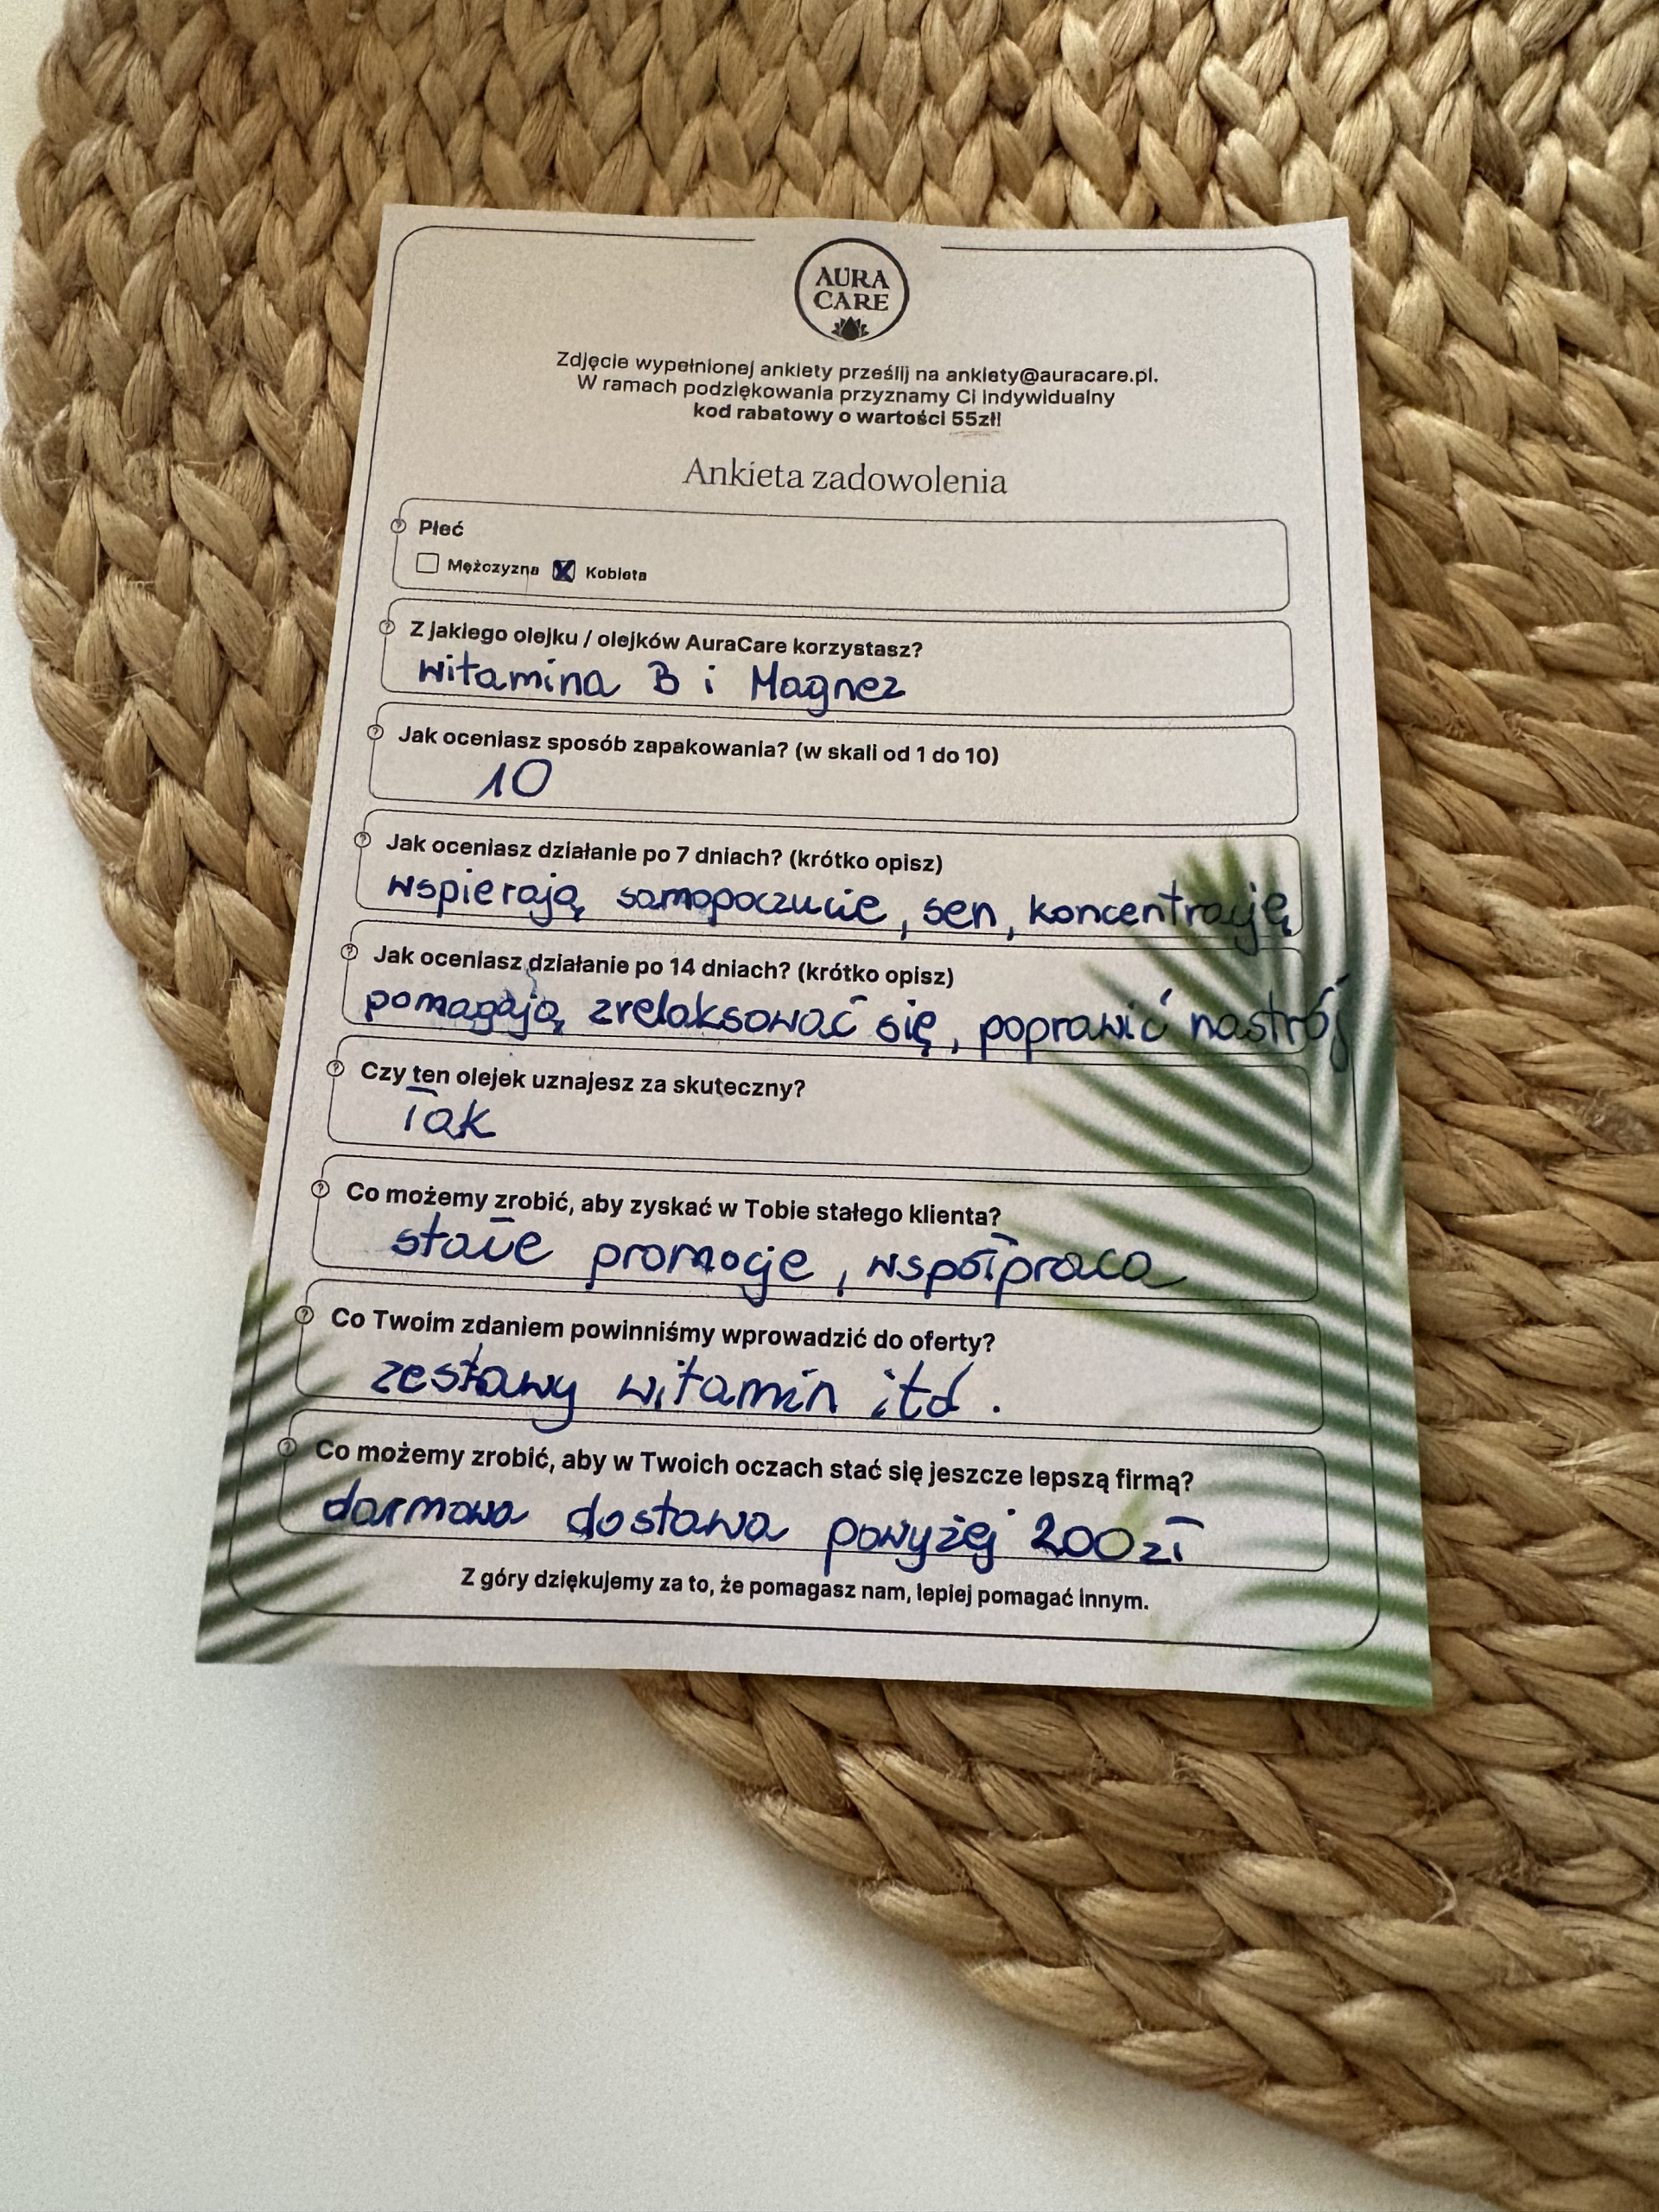 AURA
CARE
Zdjęcie wypełnionej ankiety prześlij na ankiety@auracare.pl.
W ramach podziękowania przyznamy Ci indywidualny
kod rabatowy o wartości 55zł!
Ankieta zadowolenia
Płeć
Mężczyzna X Kobieta
Z jakiego olejku / olejków AuraCare korzystasz?
witamina B i Magnez
Jak oceniasz sposób zapakowania? (w skali od 1 do 10)
10
Jak oceniasz działanie po 7 dniach? (krótko opisz)
wspierają samopoczucie, sen, koncentrację
Jak oceniasz działanie po 14 dniach? (krótko opisz)
pomagają zrelaksować się, poprawić nastrój
Czy ten olejek uznajesz za skuteczny?
Tak
Co możemy zrobić, aby zyskać w Tobie stałego klienta?
stałe promocje, współpraca
Co Twoim zdaniem powinniśmy wprowadzić do oferty?
zestawy witamin itd.
Co możemy zrobić, aby w Twoich oczach stać się jeszcze lepszą firmą?
darmowa dostawa powyżej 200zł
Z góry dziękujemy za to, że pomagasz nam, lepiej pomagać innym.